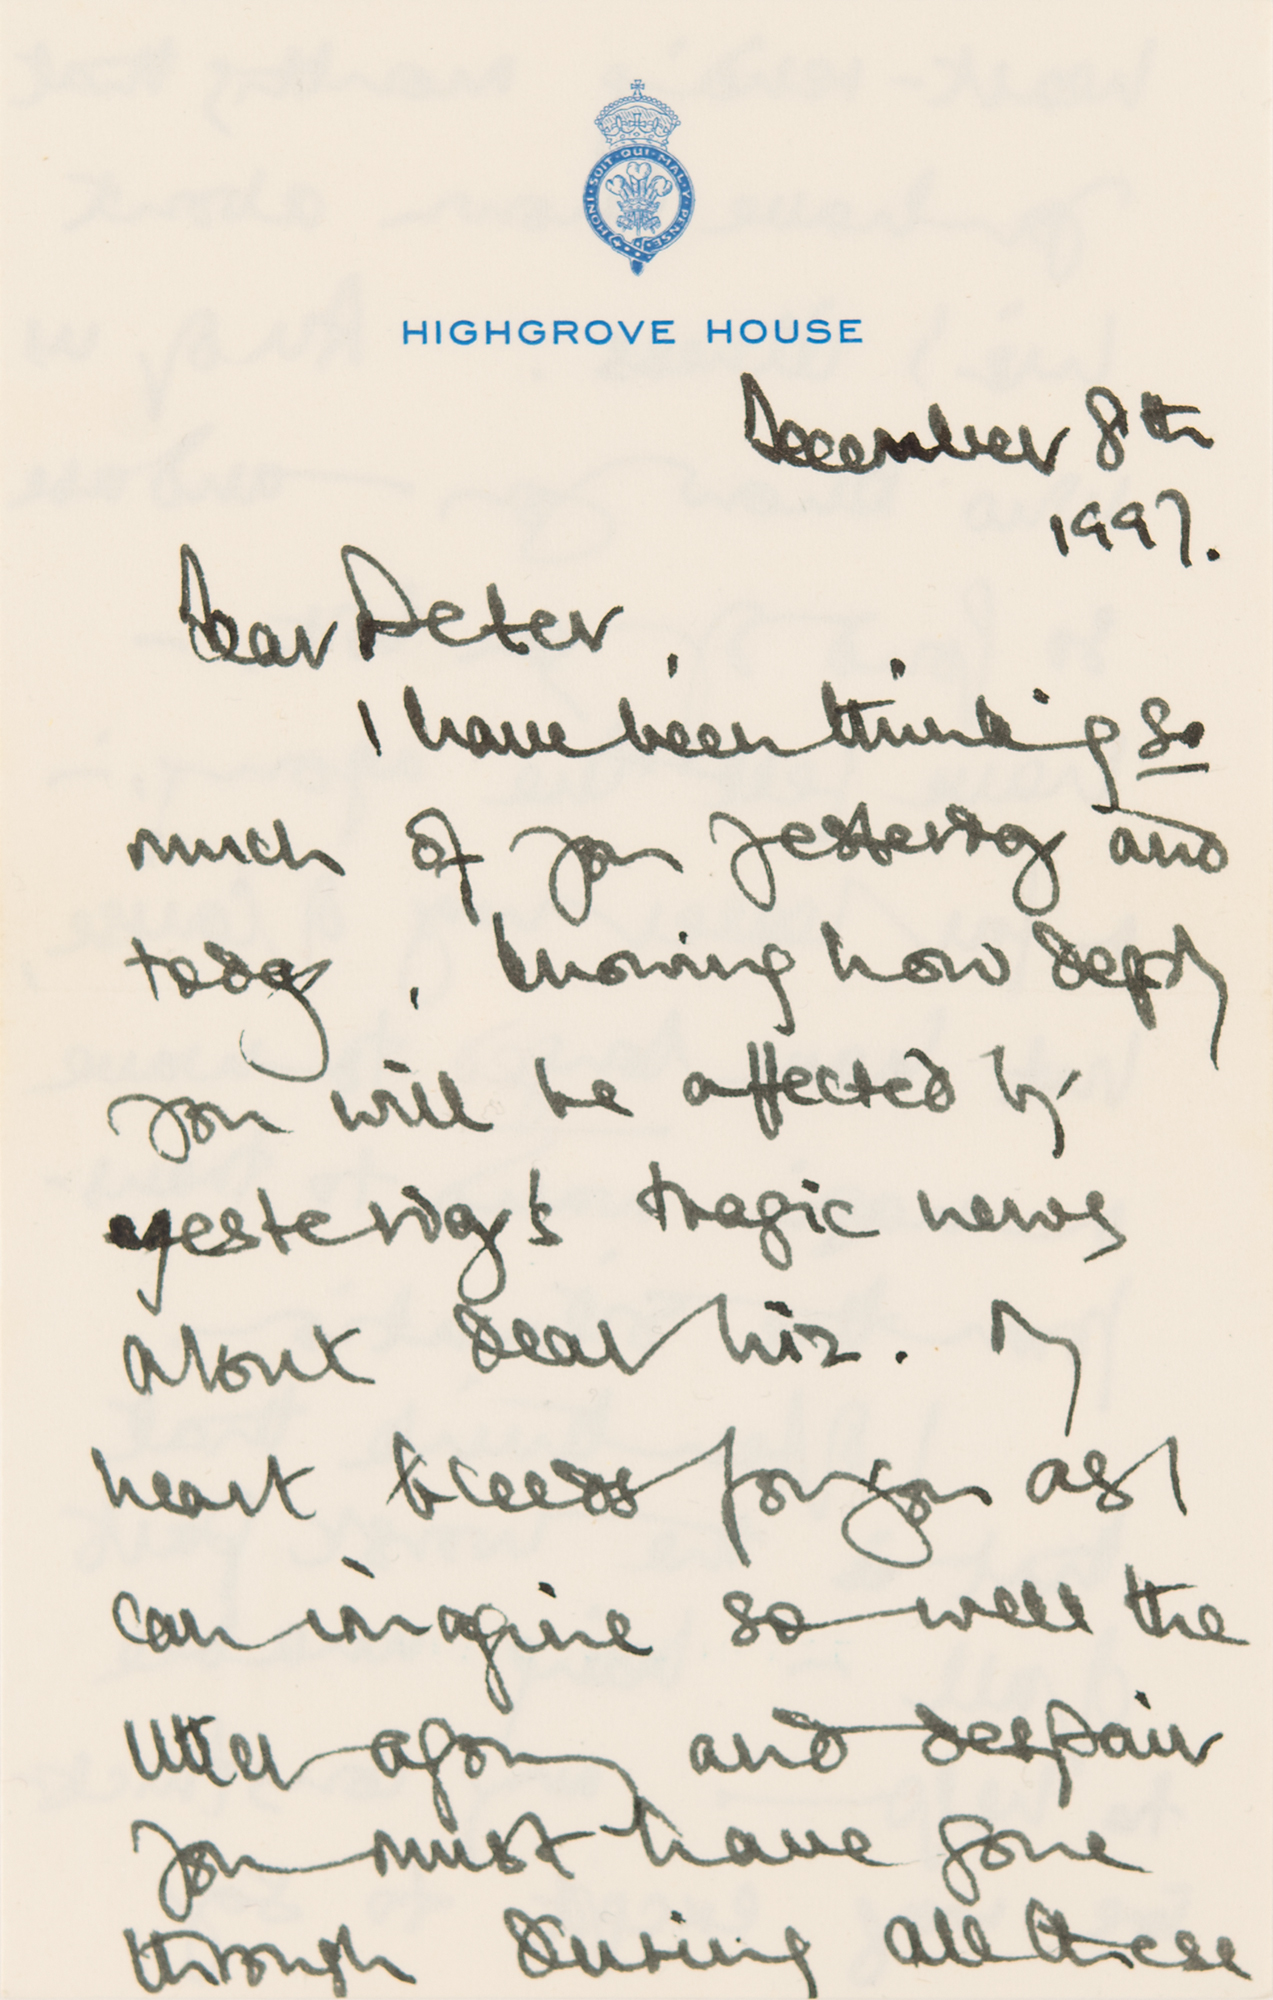 HONI · SOIT · QUI · MAL · Y · PENSE
HIGHGROVE HOUSE
December 8th
1997.
Dear Peter,
I have been thinking so
much of you yesterday and
today, knowing how deeply
you will be affected by
yesterday's tragic news
about dear Liz. My
heart bleeds for you as I
can imagine so well the
utter agony and despair
you must have gone
through during all these